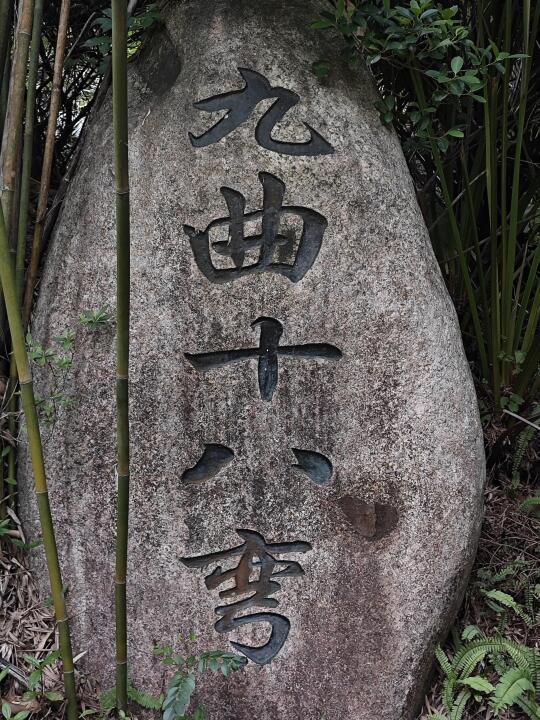 九曲十八弯